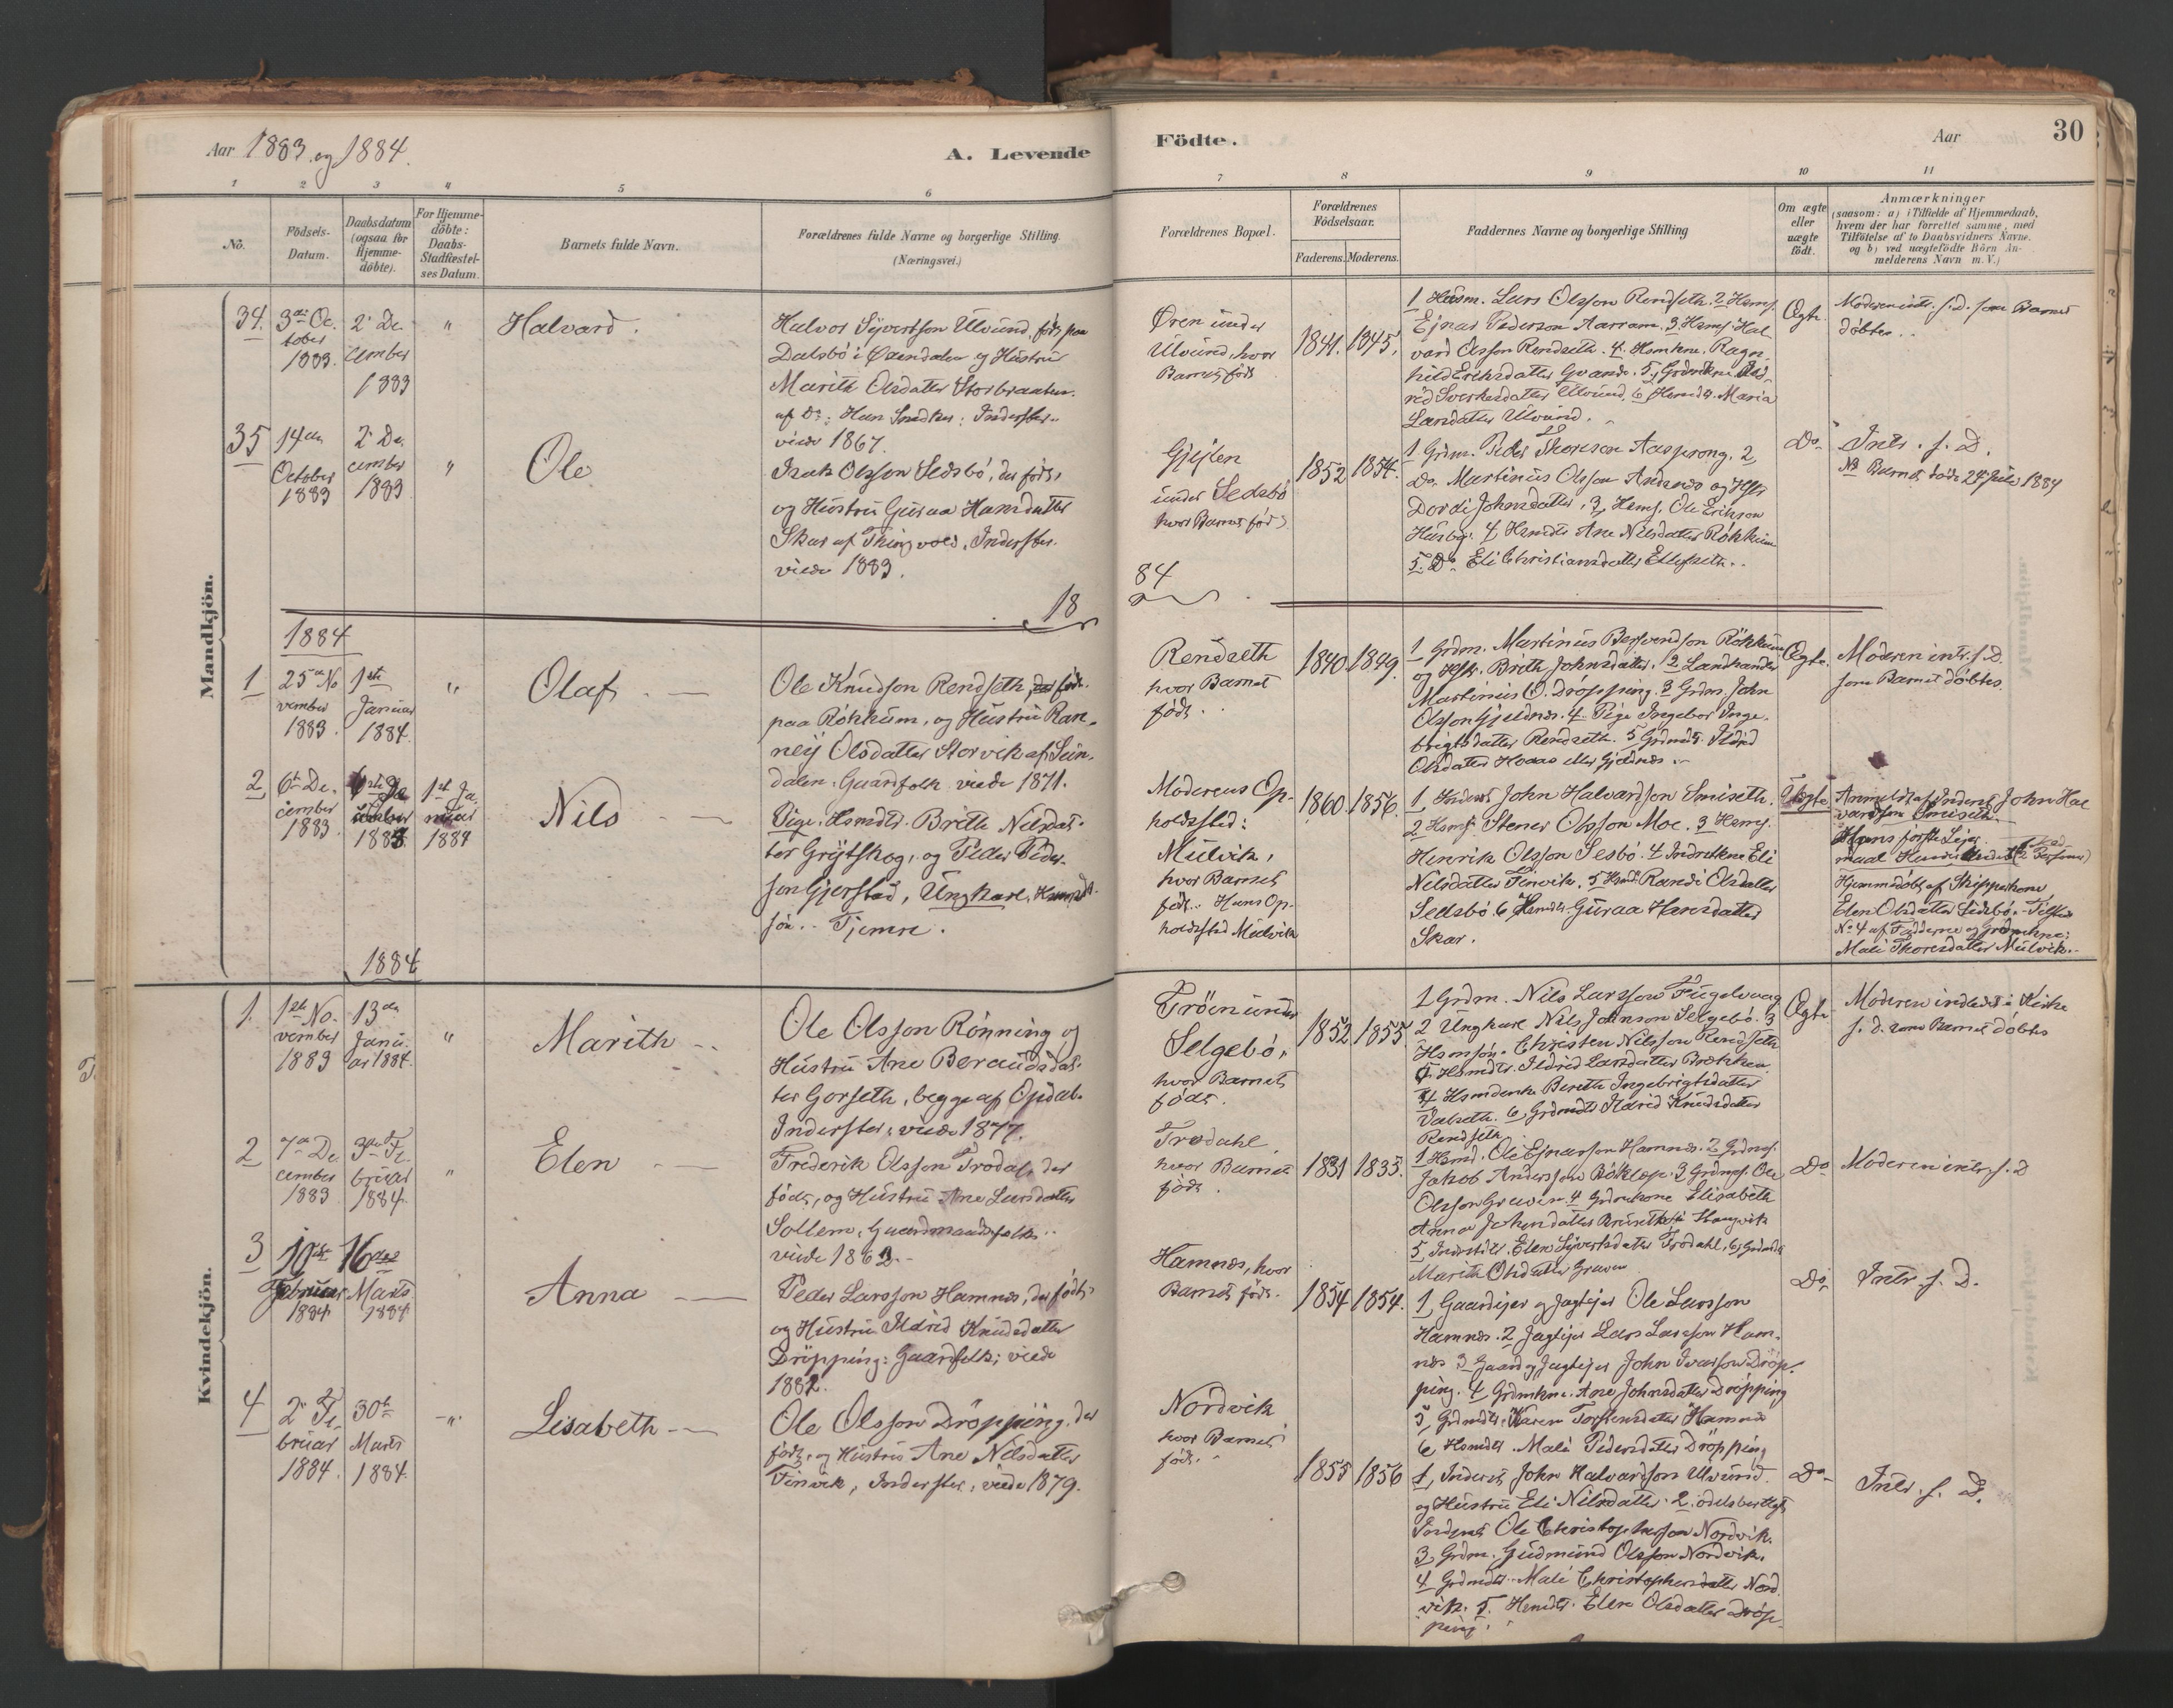 Aar 1883 og 1884.
A. Levende
Födte.
Aar
30
1
2
3
4
5
6
7
8
9
10
11
No.
Födsels-
Datum.
Daabsdatum
(ogsaa for
Hjemme-
döbte).
For Hjemme-
döbte:
Daabs-
Stadfæstel-
ses Datum.
Barnets fulde Navn.
Forældrenes fulde Navne og borgerlige Stilling.
(Næringsvei.)
Forældrenes Bopæl.
Forældrenes
Födselsaar.
Faderens.
Moderens.
Faddernes Navne og borgerlige Stilling
Om ægte
eller
uægte
födt.
Anmærkninger
(saasom: a) i Tilfælde af Hjemmedaab,
hvem der har forrettet samme, med
Tilföielse af to Daabsvidners Navne.
og b) ved uægtefödte Börn An-
melderens Navn m. V.)
Mandkjön.
34.
3die Oc-
tober
1883.
2. De-
cember
1883
"
Halvard.
Halvor Syvertson Ulvund, föds paa
Dalsbö i Öxendalen og Hustru
Marith Olsdatter Storbraaten.
af Do: Han Snedker: Inderster.
viede 1867.
Ören under
Ulvund, hvor
Barnet föds
1841.
1845.
1 Husm. Lars Olsson Rendseth. 2 Hsms.
Ejnar Pederson Aarram. 3 Hsms. Hal-
vard Olsson Rendseth. 4. Hsmkne. Ragn-
hild Eriksdatter Gvande. 5, Grdmkne
Sverkesdatter Ulvund, 6 Hsmdt. Maria
Larsdatter Ulvund.
Ægte.
Moderen intr. s. D. som Barnet
döbtes.
35
14de
October
1883
2. De-
cember
1883
"
Ole
Isak Olsson Sedsbö, der föds,
og Hustru Guraa Hansdatter
Skar af Thingvold, Inderster.
viede 1883.
Gjejlen
under Sedsbö
hvor Barnet föds
1852
1854.
1 Grdm. Peder Thoreson Aasprong. 2
Do. Martinus Olsson Andsnes og Hstr.
Dordi Johnsdatter, 3, Hsms. Ole Erikson
Husby. 4 Hsmdt. Ane Nilsdatter Rökkum
5. Do. Eli Christiansdatter Ellefseth.
Do.
Intr. s. D.
NB Barnet döde 24 Juli 1884
18
84
1884
1
25de No-
vember
1883.
1ste
Januar
1884.
"
Olaf.
Ole Knudson Rendseth, der föds
paa Rökkum, og Hustru Ran-
neij Olsdatter Storvik af Sun-
dalen. Gaardfolk viede 1871.
Rendseth
hvor Barnet
föds.
1840
1849.
1 Grdm. Martinus Bersvendson Rökkum
og Hstr. Brith Johnsdatter. 2 Landhandler
Martinus O. Dröpping. 3 Grdm. John
Olsson Gjeldnes. 4. Pige Ingebor Inge-
brigtsdatter Rendseth. 5 Grdmdt. Ildrid
Olsdatter Hoaas eller Gjeldnes.
Ægte.
Moderen intr. s. D.
som Barnet döbtes.
2
6te De-
cember
1883.
1883.
1ste Ja-
nuar
1884
Nils
Pige. Hsmdt. Brith Nilsdat-
ter Grytskog, og Peder Peder-
son Gjerstad, Ungkarl,
sön. Tjener.
Moderens Op-
holdssted:
Mulvik,
hvor Barnet
föds. Hans Op-
holdssted Mulvik
1860.
1856.
1, Inderst John Halvardson Smiseth.
2 Hsms. Stener Olsson Moe. 3 Hsms.
Henrik Olsson Sesbö. 4 Indrstkne Eli
Nilsdatter Finvik. 5 Hsmdt. Randi Olsdatter
Sedsbö. 6, Hsmdt. Guraa Hansdatter
Skar.
Uægte
Anmeldt af Inderst John Hal-
vardson Smiseth.
Hans förste Leier-
maal Hendes andet
Hjemmedöbt af Skipperkone
Elen Olsdatter Sedsbö. Tilstede
No. 4 af Fadderne og Grdmkne:
Mali Thoresdatter Mulvik.
Kvindekjön.
1884
1.
1ste No-
vember
1883
13de
Janu-
ar 1884.
"
Marith
Ole Olsson Rönning og
Hustru Ane Beraudsdat-
ter Gorseth, begge af Opdal.
Inderster, viede 1877.
Tröen under
Selgebö,
hvor Barnet
föds.
1852
1855
1 Grdm. Nils Larsson Fugelvaag
2 Ungkarl Nils Johnson Selgebö. 3
Hsmsön. Christen Nilsson Rendseth
5. Hsmdt. Ildrid Larsdatter Brækken.
4 Hsmdenke Bereth Ingebrigtsdatter
Valseth. 6, Grdmdt. Ildrid Knudsdatter
Rendseth
Ægte
Moderen indledet i Kirke
s. D. som Barnet döbtes
2
7de De-
cember
1883
3die Fe-
bruar
1884.
"
Elen
Frederik Olsson Trodal, der
föds, og Hustru Ane Larsdatter
Sollem, Gaardmandsfolk.
viede 1862.
Trodahl,
hvor Barnet
föds.
1831
1835.
1 Hsmd. Ole Ejnarson Hamnes. 2 Grdms.
Jakob Andersson Böklep. 3 Grdmss. Ole
Olsson Gruven. 4 Grdmkone Elisabeth
Anna Johnsdatter Bruseth fra Stangvik
5, Indrstdt. Elen Syvertsdatter Trodahl, 6, Grdmdt.
Marith Olsdatter Gruven
Do
Moderen intr. s. D
3
10de
Februar
1884
16de
Marts
1884
Anna
Peder Larsson Hamnes, der föds,
og Hustru Ildrid Knudsdatter
Dröpping: Gaardfolk; viede
1882.
Hamnes, hvor
Barnet föds.
1854
1854.
1, Gaardejer og Jagtejer Ole Larsson
Hamnes. 2 Jagtejer Lars Larsson Ham-
nes 3 Gaard og Jagtejer John Ivarson Dröp-
ping. 4 Grdmkne. Ane Johnsdatter Dröpping
5, Grdmdt. Karen Torstensdatter Hamnes
6, Hsmdt. Mali Pedersdatter Dröpping
Do
Intr. s. D.
4
2. Fe-
bruar
1884.
30te
Marts
1884.
"
Lisabeth
Ole Olsson Dröpping, der
föds, og Hustru Ane Nilsdatter
Finvik, Inderster, viede 1879.
Nordvik
hvor Barnet
föds.
1855
1856
1, Inderst John Halvardson Ulvund.
og Hustru Eli Nilsdatter. 2. odelsberettiget
Ole Christopherson Nordvik.
3, Grdm. Gudmund Olsson Nordvik.
4 Grdmdt. Mali Christophersdatter Nord-
vik. 5. Hsmdt. Elen Olsdatter Dröp-
ping.
Do
Intr. s. D.